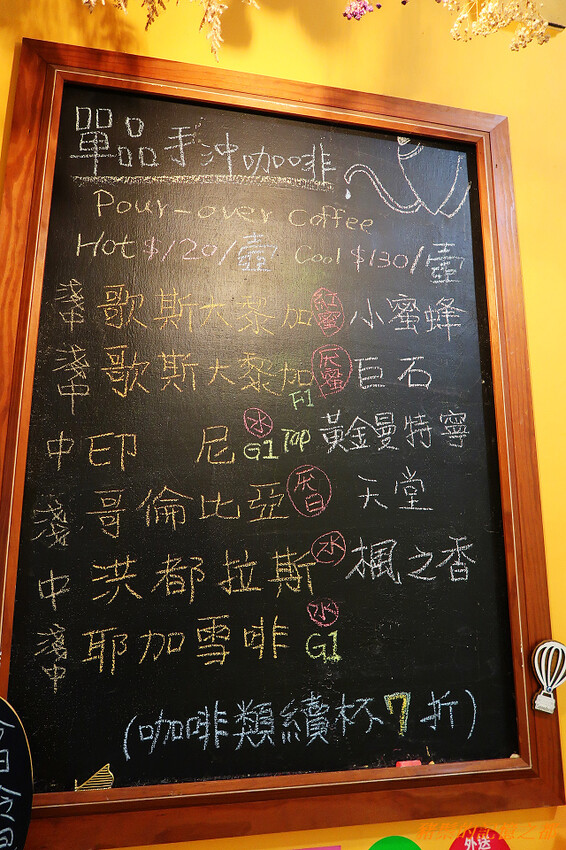 單品手沖咖啡
Pour-over Coffee
Hot $120/壺 Cool $130/壺
淺中 歌斯大黎加 紅蜜 小蜜蜂
淺中 歌斯大黎加 灰蜜 巨石
F1
中 印 尼 水 G1 Top 黃金曼特寧
淺 哥倫比亞 灰白 天堂
中 洪都拉斯 水 楓之香
淺中 耶加雪啡 水 G1
(咖啡類續杯7折)
今日
外送